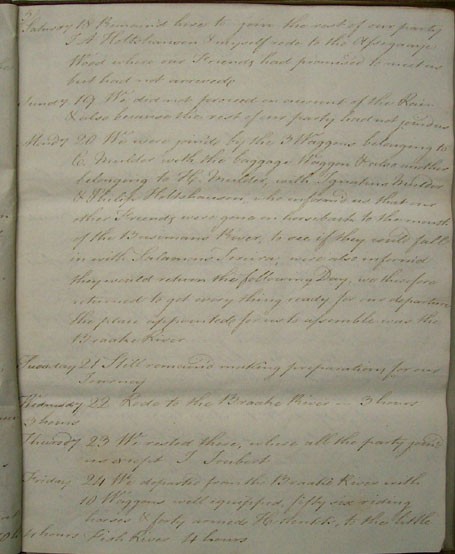 Saturday 18 Remained here to join the rest of our party
I A Holtshausen & myself rode to the
Wood where our Friends had promised to meet us
but had not arrived
Sunday 19 We did not proceed on account of the Rain
& also because the rest of our party had not joined us
Monday 20 We were joined by the 3 Waggons belonging to
C. Mulder with the baggage Waggon & also another
belonging to H. Mulder, with Ignatius Mulder
& Philip Holtshausen, who informed us that our
other Friends were gone on horseback to the mouth
of the Bosemans River, to see if they could fall
in with were also informed
they would return the following Day, we therefore
returned to get every thing ready for our departure
the place appointed for us to assemble was the
Braake River
Tuesday 21 Still remained making preparations for our
Journey
Wednesday 22 Rode to the Braake River in 3 hours
3 hours
Thursday 23 We rested there, where all the party joined
us except I Joubert
Friday 24 We departed from the Braake River with
10 Waggons well equipped, fifty six riding
horses & forty armed to the little
4 hours Fish River 4 hours